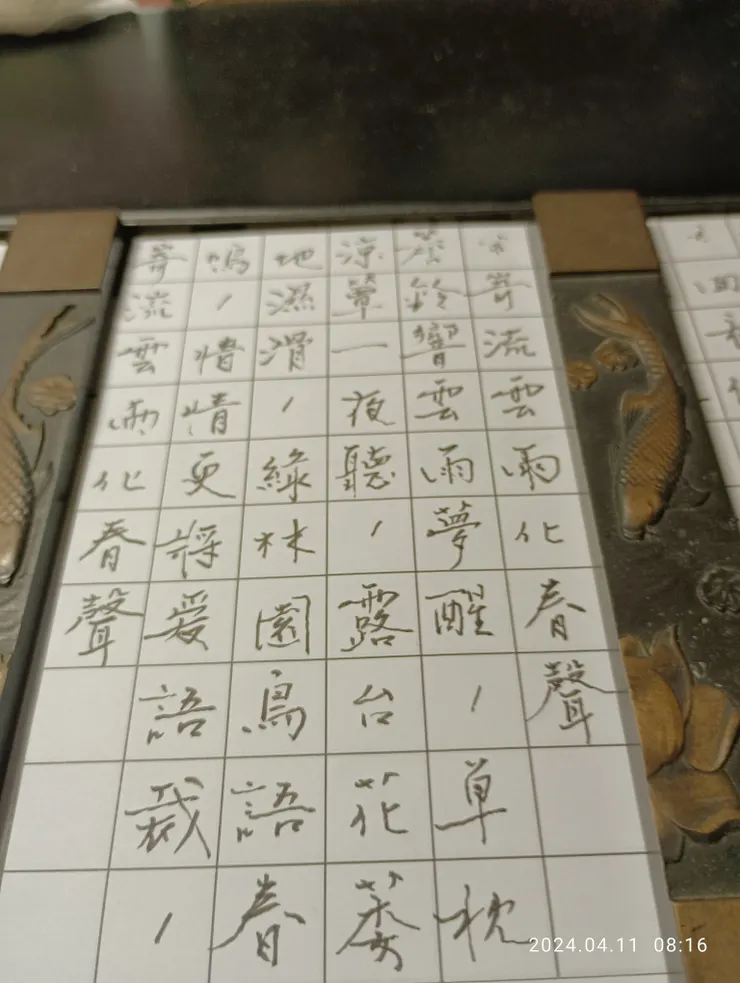 寄流雲雨化春聲
鈴響雲雨夢醒，草枕
涼簟一夜聽，露台花萎
地濕滑，綠林園鳥語春
鳴，惜情更譯愛語裁，
寄流雲雨化春聲
2024.04.11 08:16